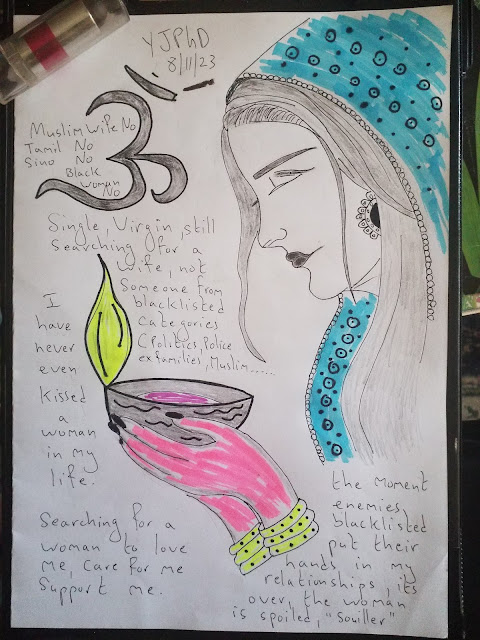 YJPhD
8/11/23
ॐ
Muslim wife No
Tamil No
Sino No
Black
woman
No
Single, Virgin, still
searching for a
wife, not
someone from
blacklisted
categories
(Politics, Police
ex families, Muslim.....
I
have
never
even
kissed
a
woman
in my
life.
Searching for a
woman to love
me, care for me
support me.
the moment
enemies,
blacklisted
put their
hands in my
relationships, its
over, the woman
is spoiled, "Souiller"